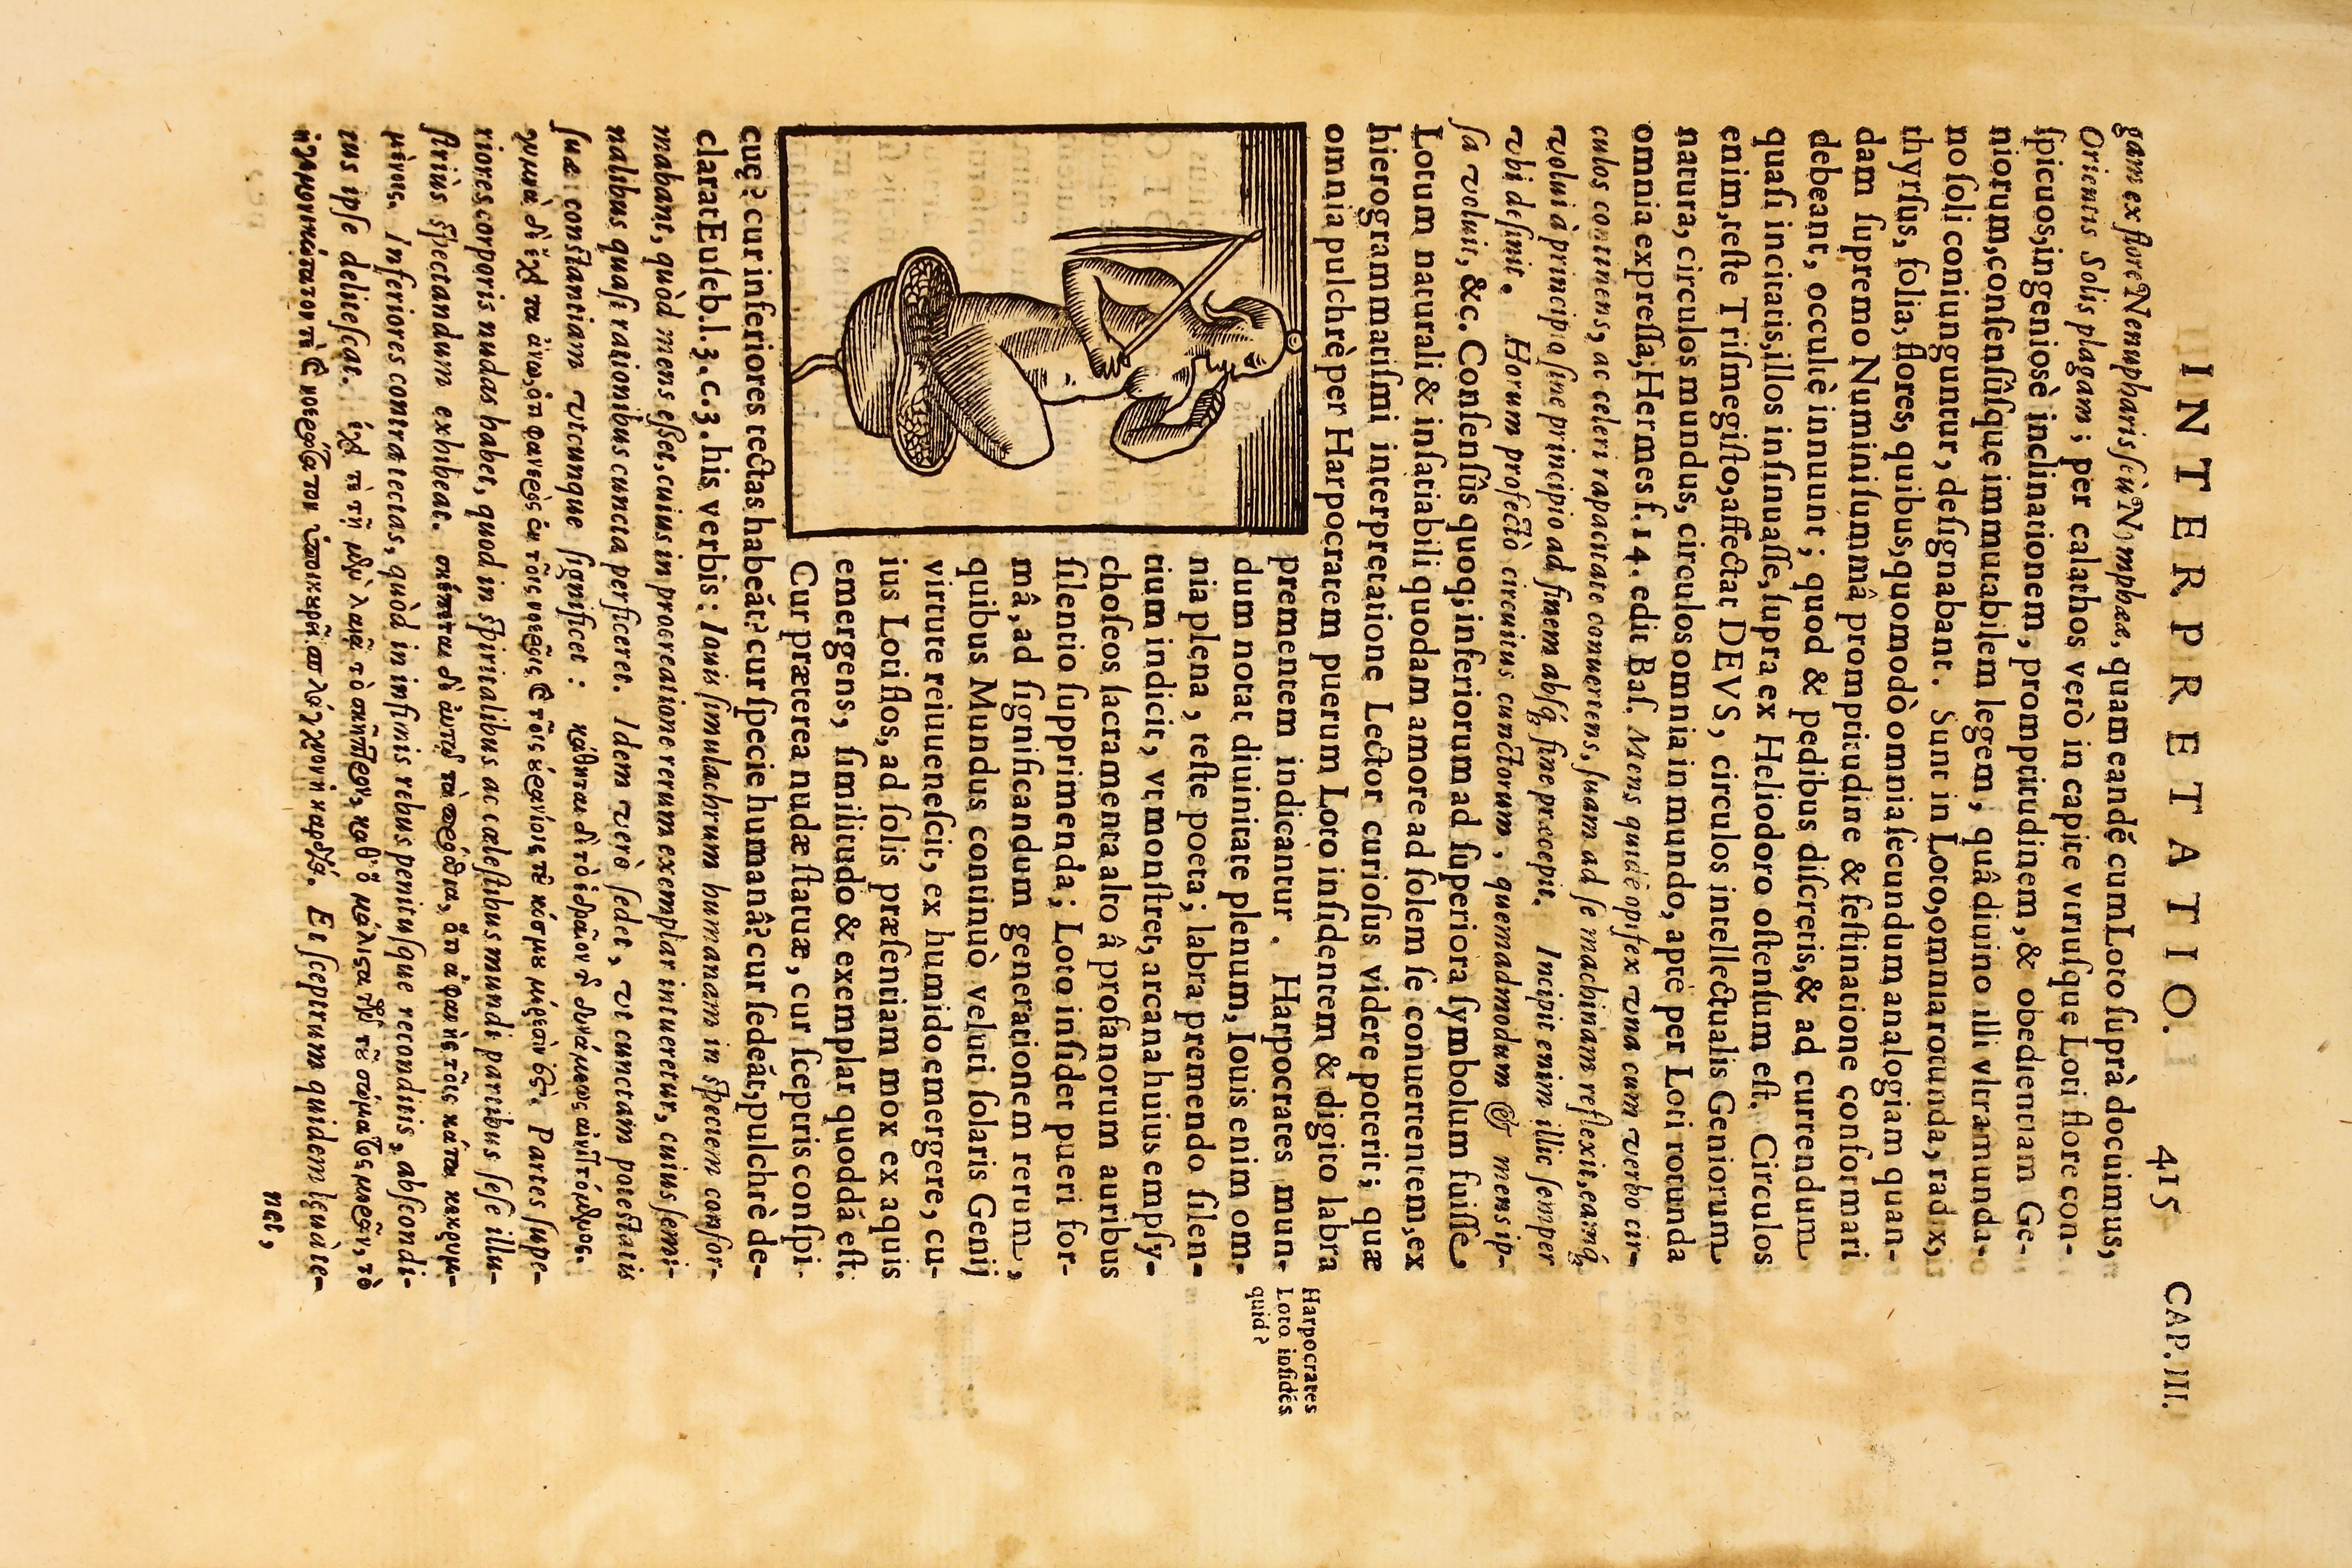 INTERPRETATIO. 415 CAP. III.
gam ex flore Nenupharis ſeù Nymphææ, quam eandẽ cum Loto ſuprà docuimus,
Orientis Solis plagam; per calathos verò in capite vtriuſque Loti flore con-
ſpicuos, ingeniosè inclinationem, promptitudinem, & obedientiam Ge-
niorum, conſenſûſque immutabilem legem, quâ diuino illi vltramunda-
no ſoli coniunguntur, deſignabant. Sunt in Loto, omnia rotunda, radix,
thyrſus, folia, flores, quibus, quomodò omnia ſecundum analogiam quan-
dam ſupremo Numini ſummâ promptitudine & feſtinatione conformari
debeant, occultè innuunt; quod & pedibus diſcretis, & ad currendum
quaſi incitatis, illos inſinuaſſe, ſupra ex Heliodoro oſtenſum eſt. Circulos
enim, teſte Triſmegiſto, affectat DEVS, circulos intellectualis Geniorum
natura, circulos mundus, circulos omnia in mundo, aptè per Loti rotunda
omnia expreſſa, Hermes ſ. 14. edit Baſ. Mens quidẽ opifex vna cum verbo cir-
culos continens, ac celeri rapacitate conuertens, ſuam ad ſe machinam reflexit, eamq́;
volui à principio ſine principio ad finem abſq́; fine præcepit. Incipit enim illic ſemper
vbi deſinit. Horum profectò circuitus cunctorum, quemadmodum & mens ip-
ſa voluit, &c. Conſenſûs quoq; inferiorum ad ſuperiora ſymbolum fuiſſe
Lotum naturali & inſatiabili quodam amore ad ſolem ſe conuertentem, ex
hierogrammatiſmi interpretatione Lector curioſus videre poterit; quæ
omnia pulchrè per Harpocratem puerum Loto inſidentem & digito labra
prementem indicantur. Harpocrates mun-
dum notat diuinitate plenum, Iouis enim om-
nia plena, teſte poeta; labra premendo ſilen-
tium indicit, vt monſtret, arcana huius empſy-
choſeos ſacramenta alto â profanorum auribus
ſilentio ſupprimenda; Loto inſidet pueri for-
mâ, ad ſignificandum generationem rerum,
quibus Mundus continuò veluti ſolaris Genij
virtute reiuueneſcit, ex humido emergere, cu-
ius Loti flos, ad ſolis præſentiam mox ex aquis
emergens, ſimilitudo & exemplar quoddã eſt.
Cur præterea nudæ ſtatuæ, cur ſceptris conſpi-
cuę? cur inferiores tectas habeãt? cur ſpecie humanâ? cur ſedeãt, pulchrè de-
clarat Euſeb. l. 3. c. 3. his verbis: Iouis ſimulachrum humanam in ſpeciem confor-
mabant, quòd mens eſſet, cuius in procreatione rerum exemplar intueretur, cuius ſemi-
nalibus quaſi rationibus cuncta perficeret. Idem verò ſedet, vt cunctam poteſtatis
ſuæ conſtantiam vtcumque ſignificet: κάθηται δὲ τὸ ἑδραῖον τ δυνάμεως αἰνιττόμενος.
γυμνὰ δὲ ἔχει τὰ ἄνω, ὅτι φανερὸς ἐν τοῖς νοεροῖς καὶ τοῖς οὐρανίοις τοῦ κόσμου μέρεσίν ἐστι. Partes ſupe-
riores corporis nudas habet, quod in ſpiritalibus ac cæleſtibus mundi partibus ſeſe illu-
ſtriùs ſpectandum exhibeat. σκέπεται δὲ αὐτῷ τὰ πρόσθια, ὅτι ἀφανὴς τοῖς κάτω κεκρυμ-
μένοις. Inferiores contra tectas, quòd in infinis rebus penituſque reconditis, abſcondi-
tus ipſe deliteſcat. ἔχει τε τῇ μὲν λαιᾷ τὸ σκῆπτρον, καθ' ὃ μάλιστα τῶν τοῦ σώματος μερῶν, τὸ
ἡγεμονικώτατόν τε καὶ νοερώτατον ὑποικουρεῖ σπλάγχνον ἡ καρδία. Et ſceptrum quidem lęua te-
net,
Harpocrates
Loto inſidẽs
quid?